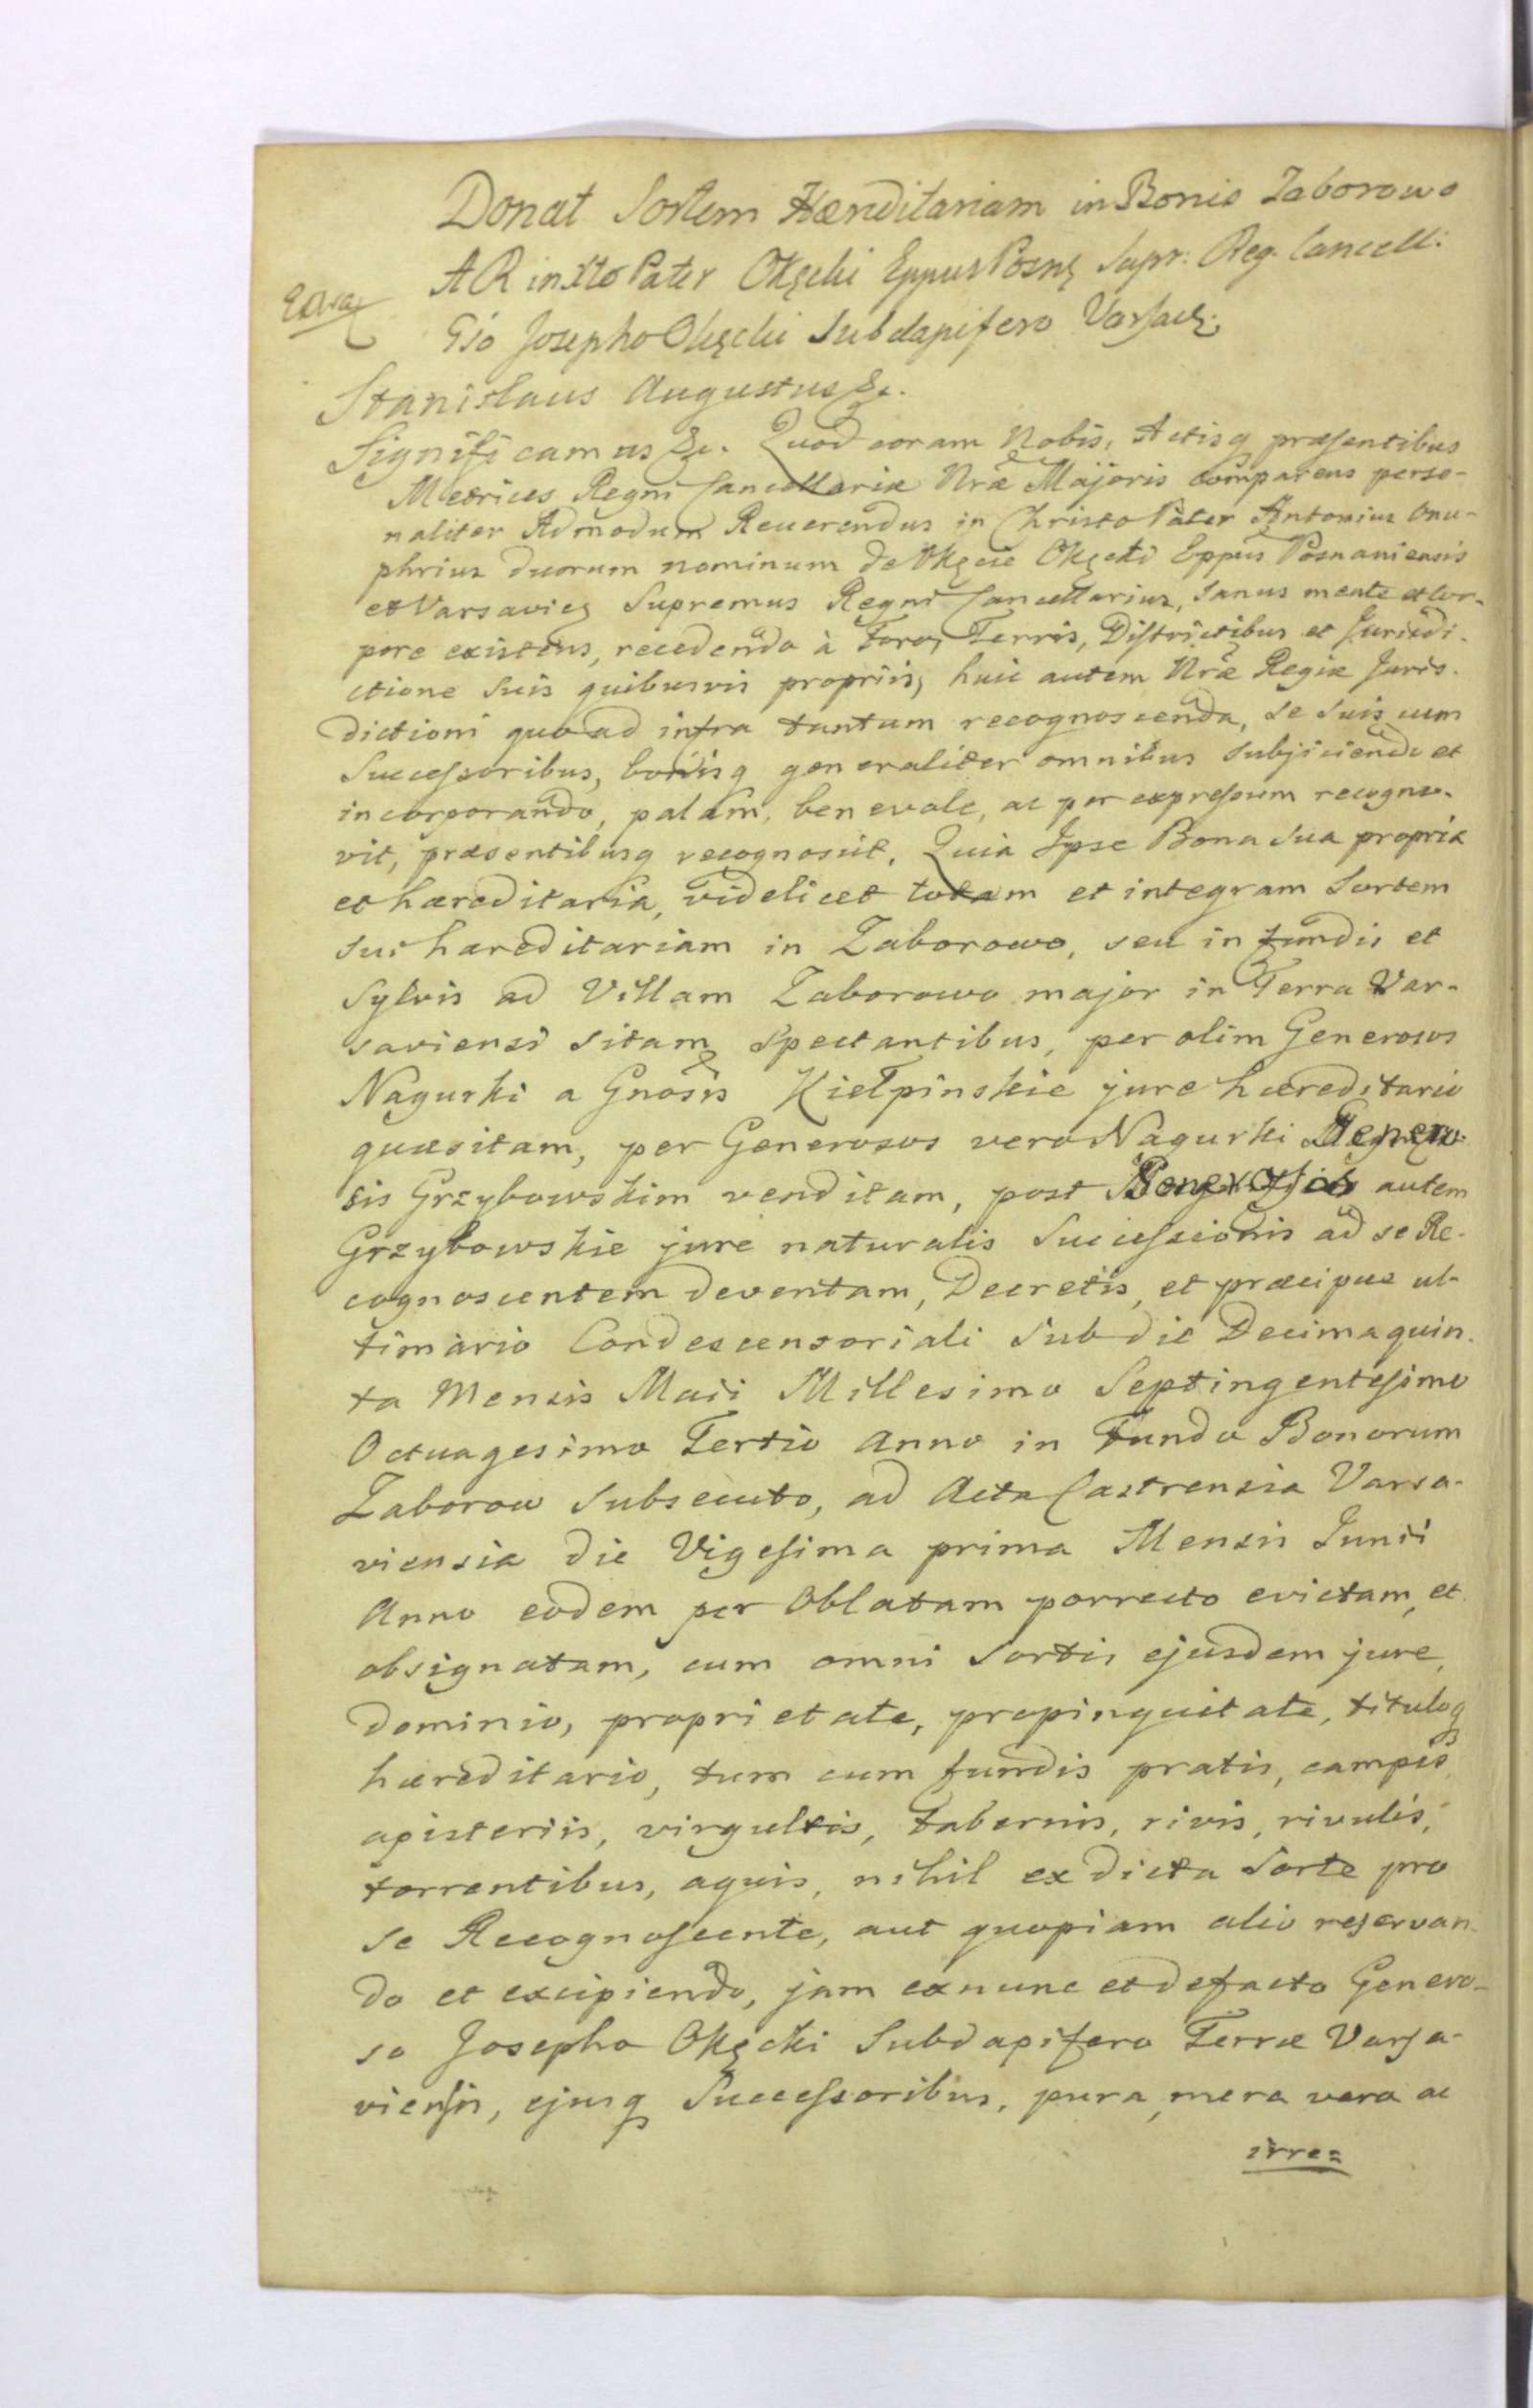 Donat Sortem Hæreditariam in Bonis Zaborowo
A R in Xto Pater Okęcki Eppus Posnę Supr: Reg. Cancell:
Gso Josepho Okęcki Subdapifero Varsavę
Stanislaus Augustus &c.
Significamus &c. Quod coram Nobis, Actisq præsentibus
Metrices Regni Cancellariæ Nræ Majoris comparens perso-
naliter Admodum Reverendus in Christo Pater Antonius Onu-
phrius duorum nominum de Okęcie Okęcki Eppus Posnaniensis
et Varsavieę Supremus Regni Cancellarius, sanus mente et cor-
pore existens, recedendo à Foro, Terris, Districtibus et Jurisdi-
ctione suis quibusvis propriis, huic autem Nræ Regiæ Juris-
dictioni quoad infra tantum recognoscenda, se suis cum
Successoribus, bonisq generaliter omnibus subjiciendo et
incorporando, palam, benevole, ac per expressum recogno-
vit, præsentibusq recognoscit. Quia Ipse Bona sua propria
et hæreditaria, videlicet totam et integram Sortem
sui hæreditariam in Zaborowo, seu in fundis et
Sylvis ad Villam Zaborowo major in Terra Var-
saviensi sitam spectantibus, per olim Generosos
Nagurki a Gnosis Kiełpinskie jure hæreditario
quæsitam, per Generosos vero Nagurki Genero-
sis Grzybowskim venditam, post Generosos autem
Grzybowskie jure naturalis Successionis ad se Re-
cognoscentem deventam, Decretis, et præcipue ul-
timario Condescensoriali sub die Decima quin-
ta Mensis Maii Millesimo Septingentesimo
Octuagesimo Tertio Anno in Fundo Bonorum
Zaborow subsecuto, ad Acta Castrensia Varsa-
viensia die Vigesima prima Mensis Junii
Anno eodem per Oblatam porrecto evictam, et
obsignatam, cum omni Sortis ejusdem jure,
dominio, proprietate, propinquitate, tituloq
hæreditario, tum cum fundis pratis, campis
apisteriis, virgultis, tabernis, rivis, rivulis,
torrentibus, aquis, nihil ex dicta Sorte pro
se Recognoscente, aut quopiam alio reservan-
do et excipiendo, jam ex nunc et de facto Genero-
so Josepho Okęcki Subdapifero Terræ Varsa-
viensis, ejusq Successoribus, pura, mera vera ac
irre=